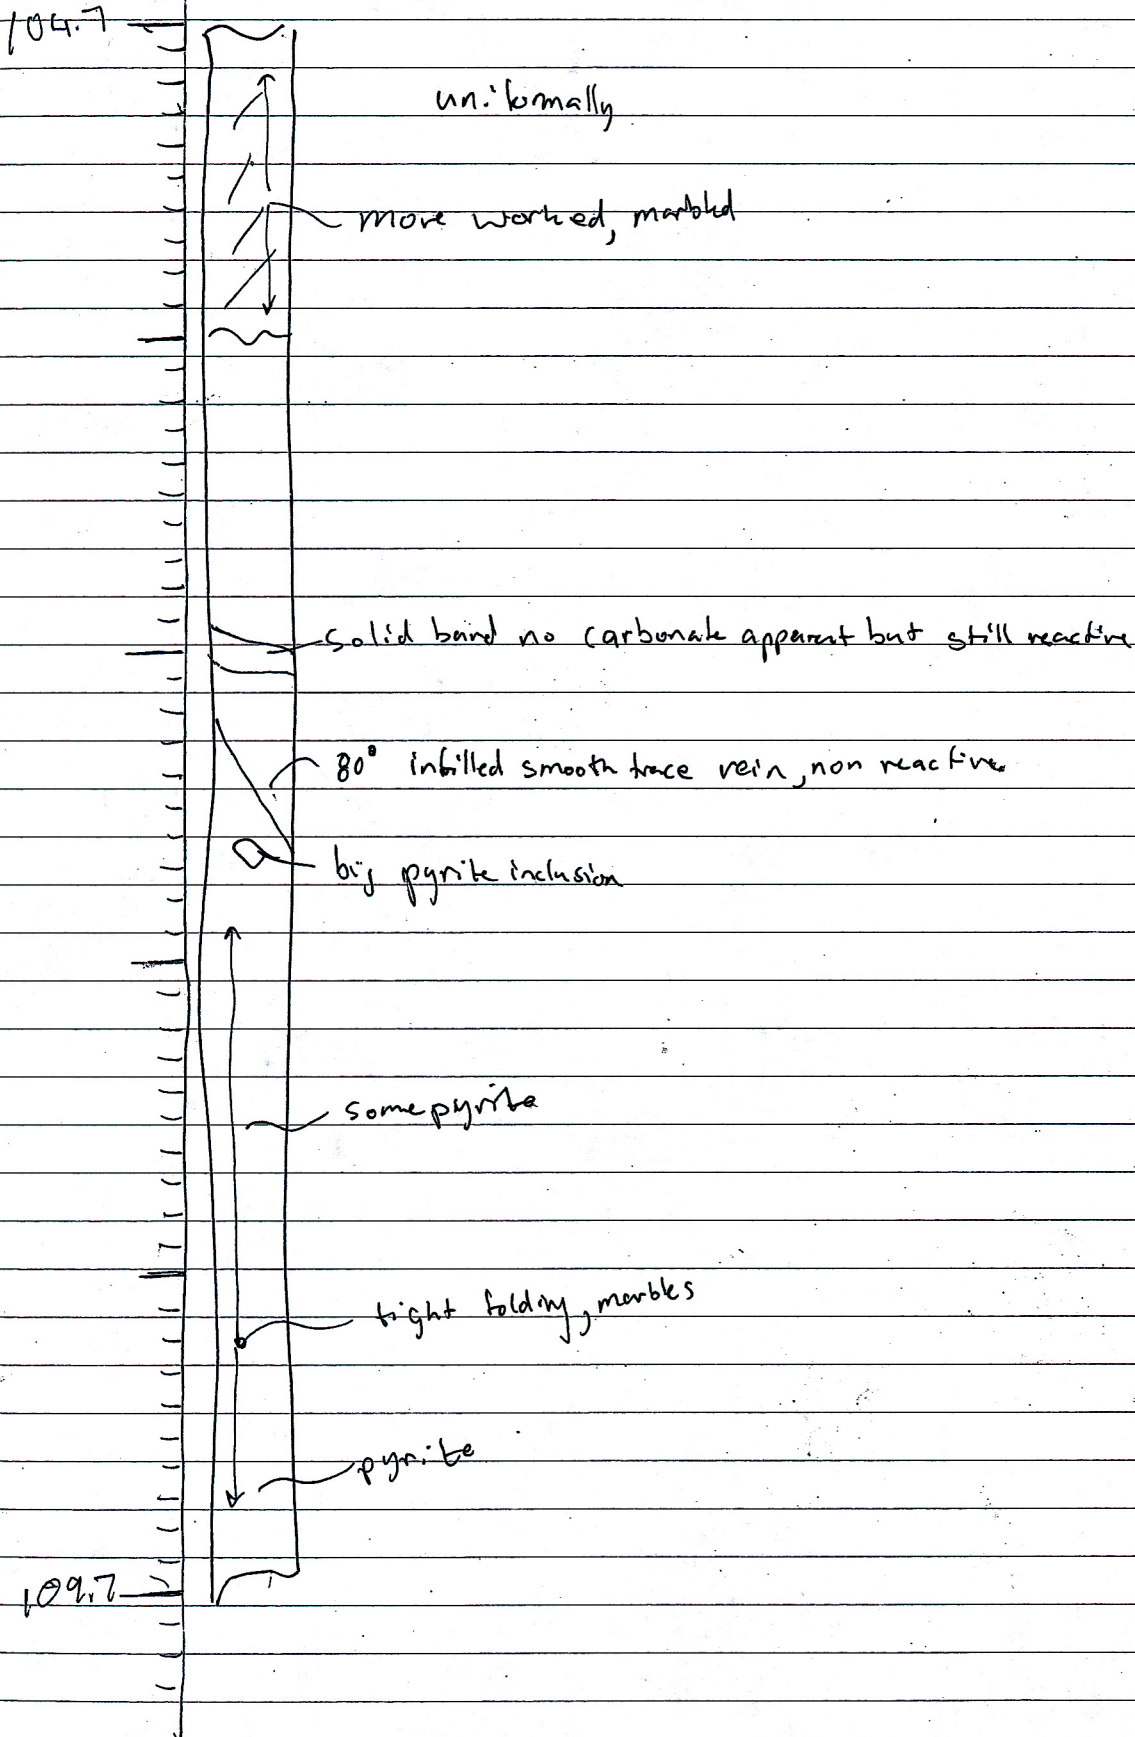 104.7
uniformally
more worked, marbled
solid band no carbonate apparent but still reactive
80° infilled smooth trace vein, non reactive
big pyrite inclusion
some pyrite
tight folding, marbles
pyrite
109.7